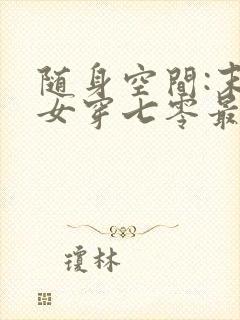 随身空間:末
女穿七零最
瓊林